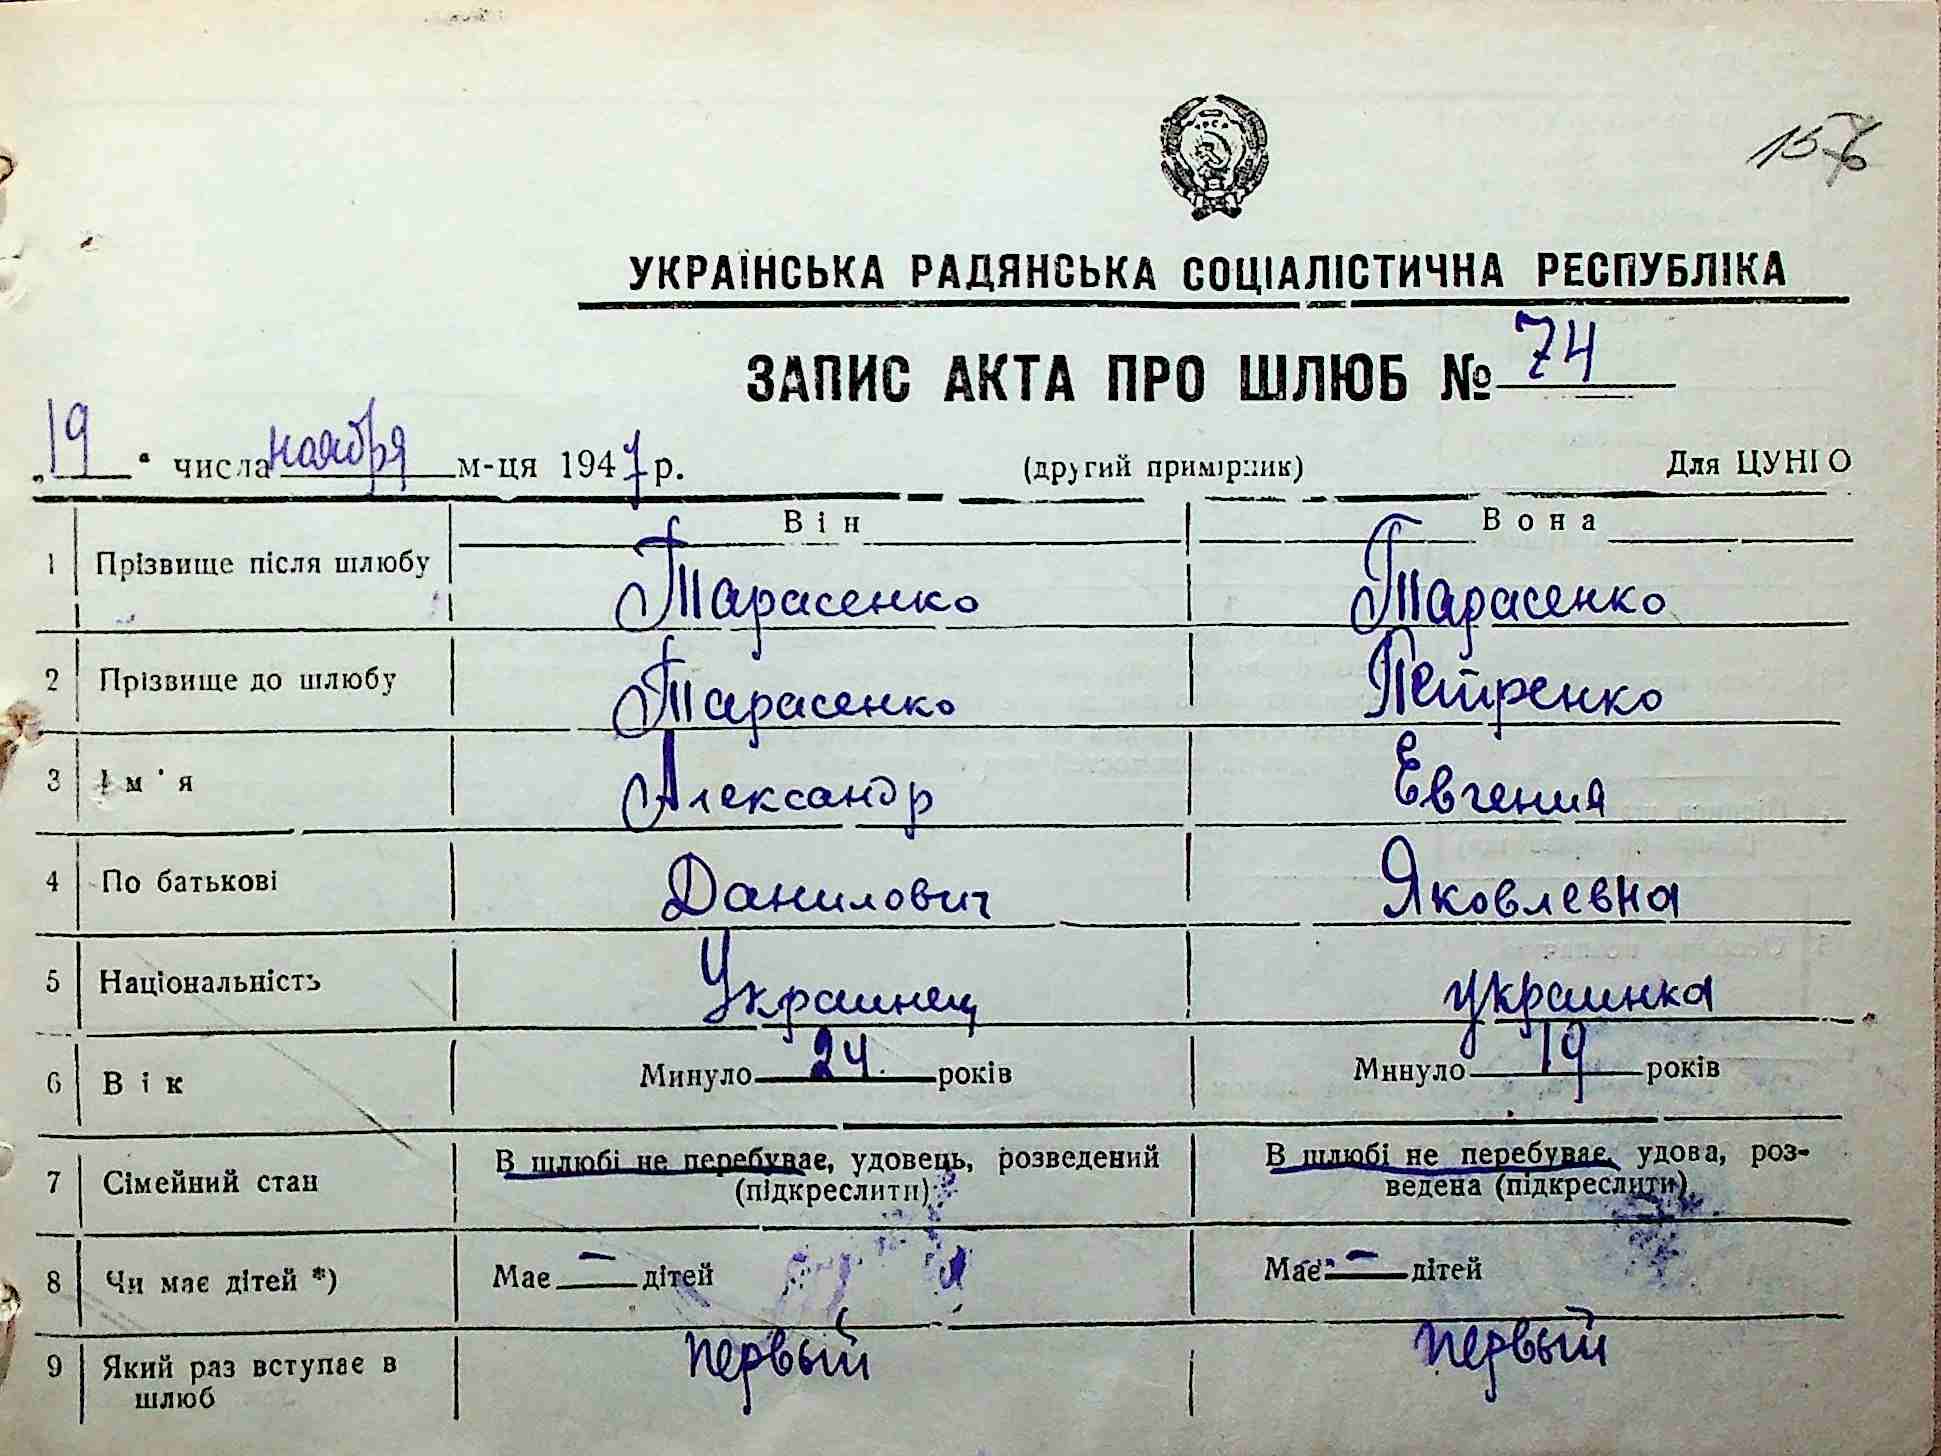 УКРАЇНСЬКА РАДЯНСЬКА СОЦІАЛІСТИЧНА РЕСПУБЛІКА
ЗАПИС АКТА ПРО ШЛЮБ № 74
„19“ числа ноября м-ця 1947 р. (другий примірник) Для ЦУНГО
Він Вона
1 Прізвище після шлюбу Тарасенко Тарасенко
2 Прізвище до шлюбу Тарасенко Петренко
3 Ім'я Александр Евгения
4 По батькові Данилович Яковлевна
5 Національність Украинец украинка
6 Вік Минуло 24. років Минуло 19 років
7 Сімейний стан В шлюбі не перебуває, удовець, розведений (підкреслити) В шлюбі не перебуває, удова, роз-
ведена (підкреслити)
8 Чи має дітей *) Має — дітей Має — дітей
9 Який раз вступає в шлюб первый первый